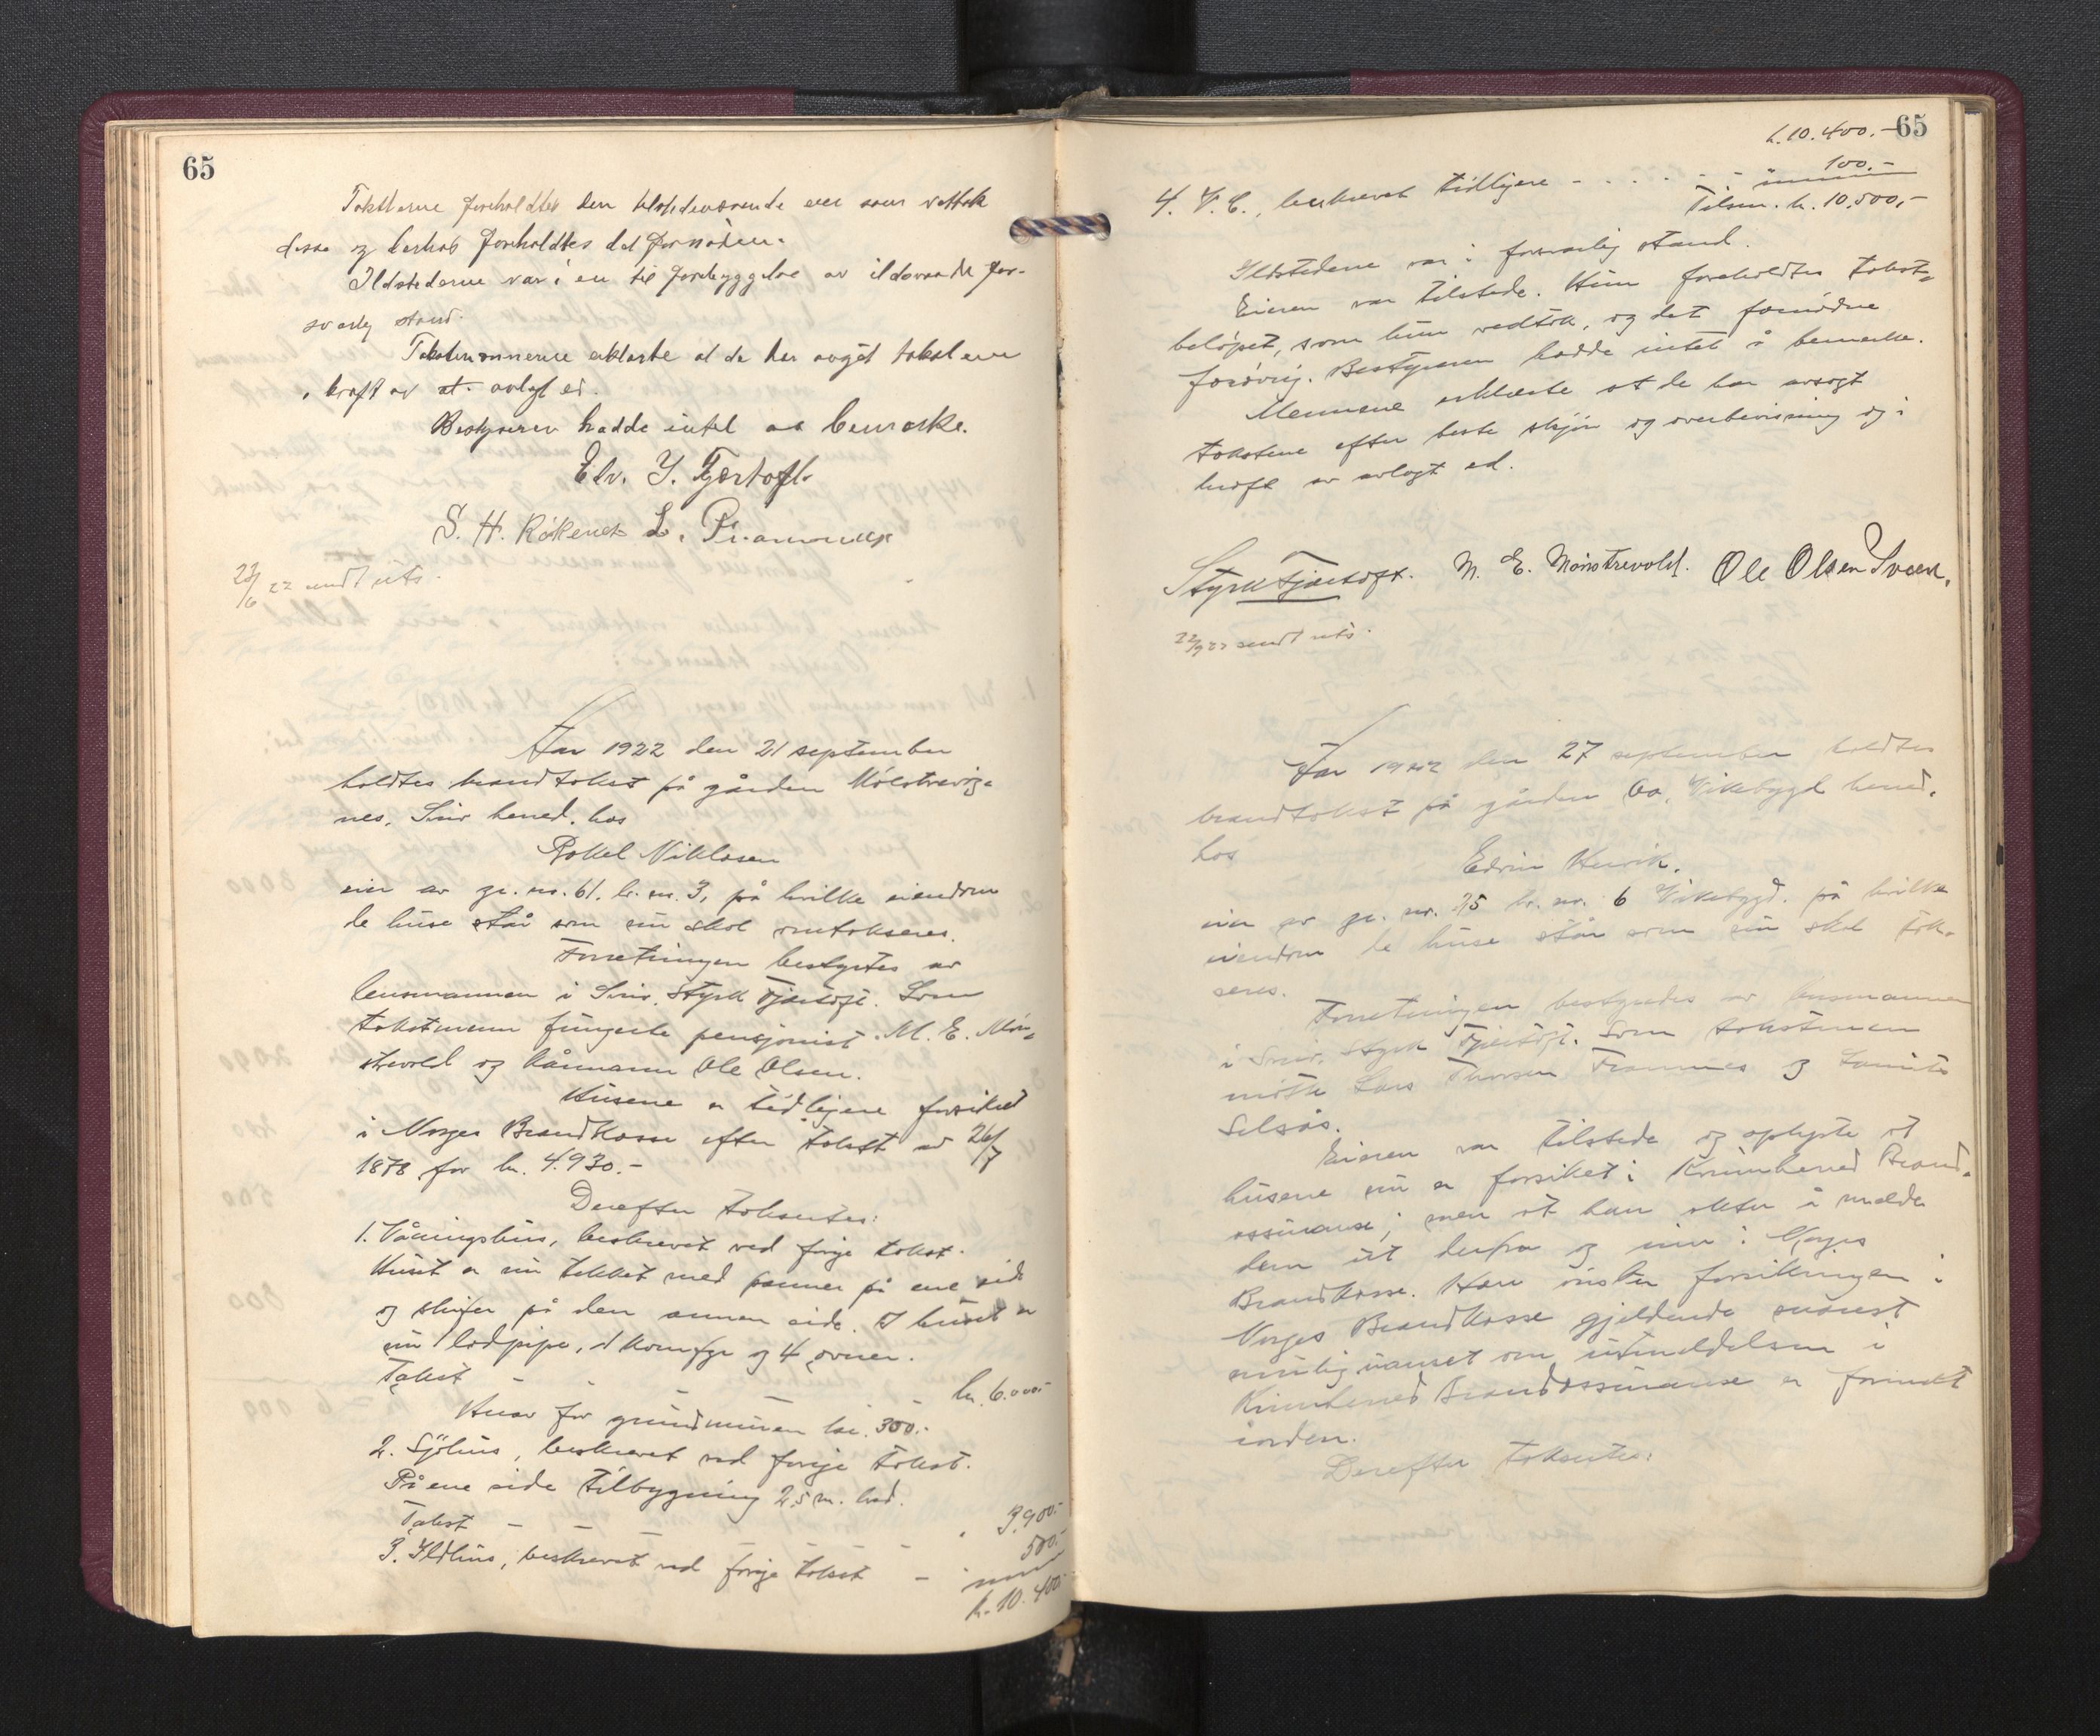 65
Takstene foreholdtes den tilstedeværende eier som vedtok
disse og herhos foreholdtes det fornødne.
Ildstederne var i en til forebyggelse av ildsvaade for-
svarlig stand.
Takstmennerne erklærte at de har avgit taksterne
i kraft av avlagt ed.
Bestyreren hadde intet aa bemerke.
Elv. Y. Fjørtoft
S. H. Røkenes L.
22/6 22 sendt uts.
Aar 1922 den 21 september
holdtes brandtakst på gården Mølstrevåg-
nes, Sveio hered. hos
Rakel Niklasen
eier av gr. nr. 61. br. nr. 3, på hvilke eiendom
de huse står som nu skal omtakseres.
Forretningen bestyrtes av
lensmannen i Sveio, Styrk Fjærtoft. Som
takstmenn fungerte pensjonist M. E. Møn-
strevold og kårmann Ole Olsen.
Husene er tidligere forsikret
i Norges Brandkasse efter takst av 26/7
1878 for kr. 4.930.-
Derefter taksertes:
1. Våningshus, beskrevet ved forrige takst.
Huset er nu tekket med panner på ene side
og skifer på den annen side. I huset er
nu 1 lodpipe, 1 komfyr og 4 ovner.
Takst - - - - kr. 6.000.-
Herav for grundmuren kr. 300.-
2. Sjøhus, beskrevet ved forrige takst.
På ene side tilbygning 2,5 m. bred.
Takst - - - - " 3.900.-
3. Ildhus, beskrevet ved forrige takst - " 500.-
k. 10.400.-
65
k. 10.400.-
4. V.C., beskrevet tidligere - . . . - - " 100.-
Tilsm. k. 10.500,-
Ildstedene var i forsvarlig stand.
Eieren var tilstede. Hun foreholdtes takst-
beløpet, som hun vedtok, og det fornødne
forøvrig. Bestyreren hadde intet å bemerke.
Mennene erklærte at de har avsagt
takstene efter beste skjøn og overbevisning og i
kraft av avlagt ed.
Styrk Fjærtoft. M. E. Mønstrevold. Ole Olsen Sveen.
22/9 22 sendt uts.
Aar 1922 den 27 september holdtes
brandtakst på gården Aa, Vikebygd hered.
hos
Edvin Henrik.
eier av gr. nr. 25 br. nr. 6 Vikebygd. på hvilke
eiendom de huse står som nu skal tak-
seres.
Forretningen bestyredes av lensmannen
i Sveio, Styrk Fjærtoft. Som takstmen
møtte Lars Thorsen Framnes og Laurits
Selsås.
Eieren var tilstede og oplyste at
husene nu er forsikret i Kvinnhered Brand-
assuranse; men at han akter å melde
dem ut derfra og inn i Norges
Brandkasse. Han ønsker forsikringen i
Norges Brandkasse gjeldende snarest
mulig uanset om utmeldelsen i
Kvinnhered Brandassuranse er formelt
iorden.
Derefter taksertes: